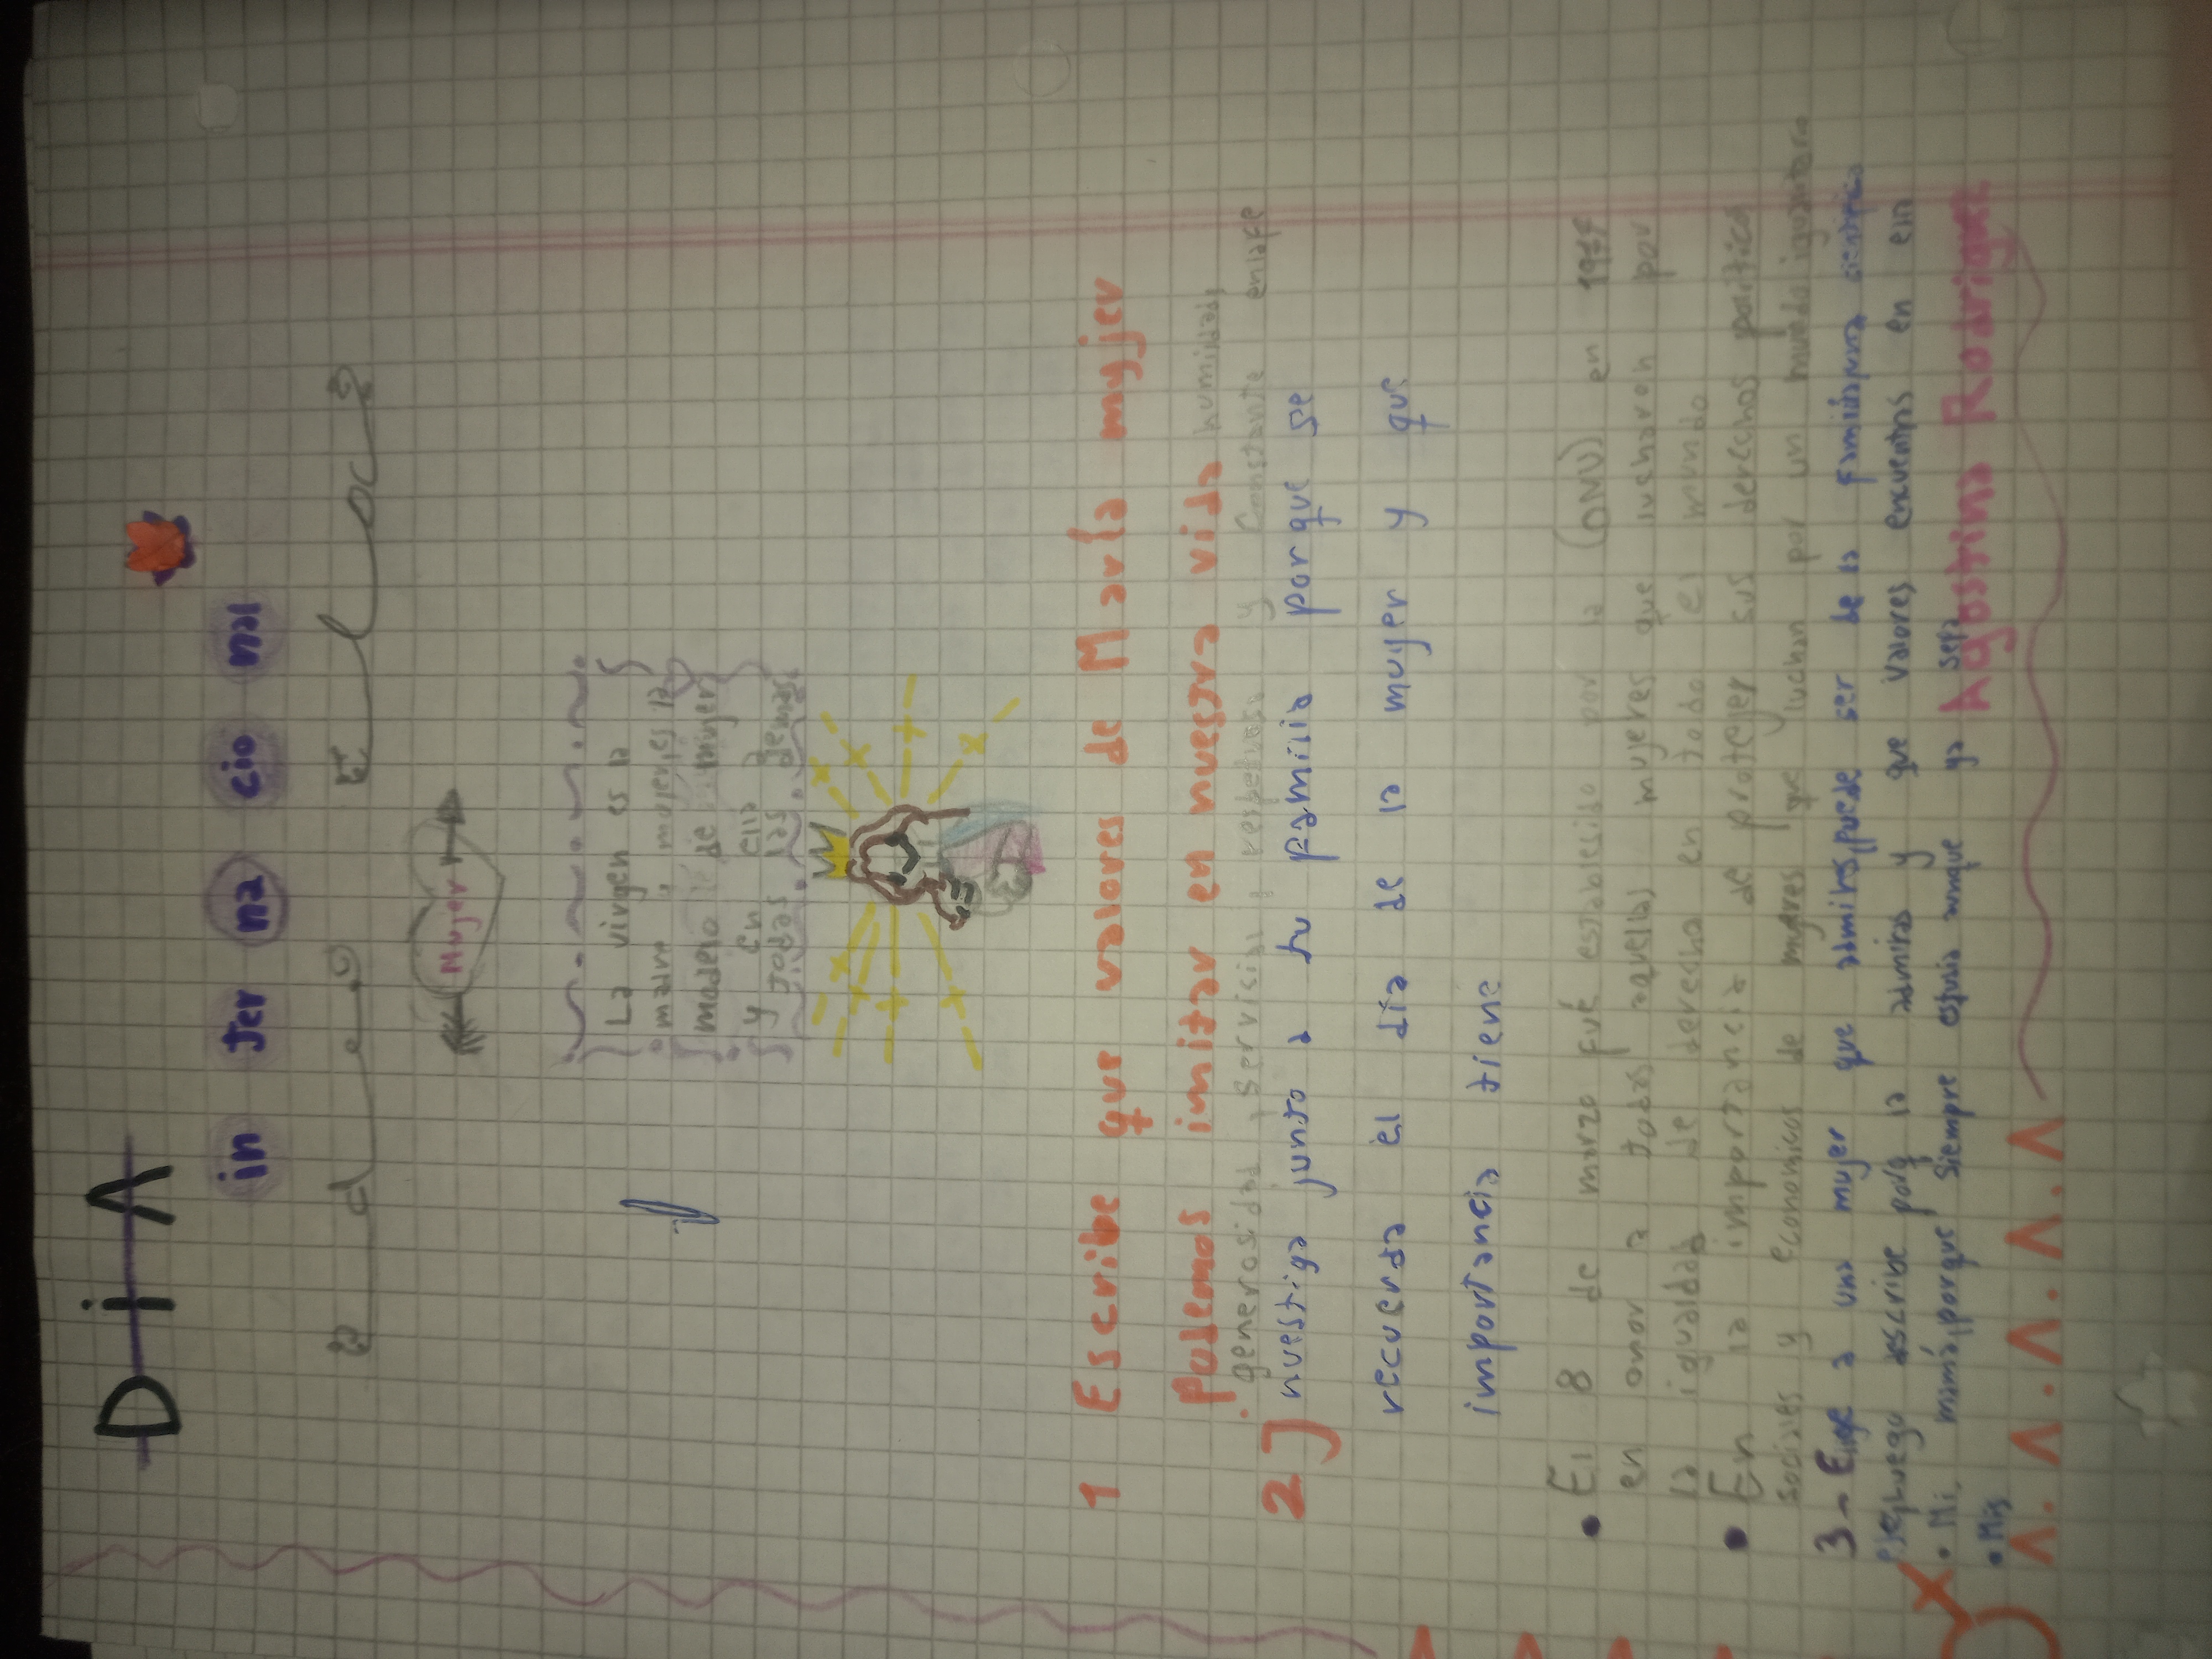 DiA
in ter na cio nal
de la
Mujer
La virgen es la
madre
modelo de mujer
y en ella
todas las demas
1 Escribe que valores de María mujer
Podemos imitar en nuestra vida humildad,
generosidad, servisial, respetuosa y Constante en la fe
2) nvestiga junto a tu familia por que se
recuerda el día de la mujer y que
importancia tiene
• El 8 de marzo fué establesido por la (ONU) en
en onor a todas aquellas mujeres que lucharon por
la igualdad de derecho en todo el mundo
• En la importancia de protejer sus derechos politico
sociales y economicos de mujeres que luchan por un mundo igualitario
3- Elige a una mujer que admires, puede ser de la familia, una cientifica
luego describe porq la admiras y que valores encuentras en ella
• Mi mamá, porque Siempre estuvo anque ya sepa
• Mis
Agostina Rodrigue